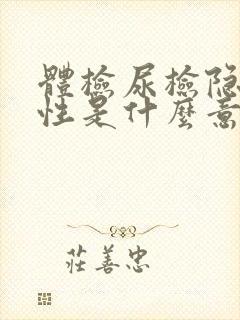 體檢尿檢隐
性是什麼意
莊善忠